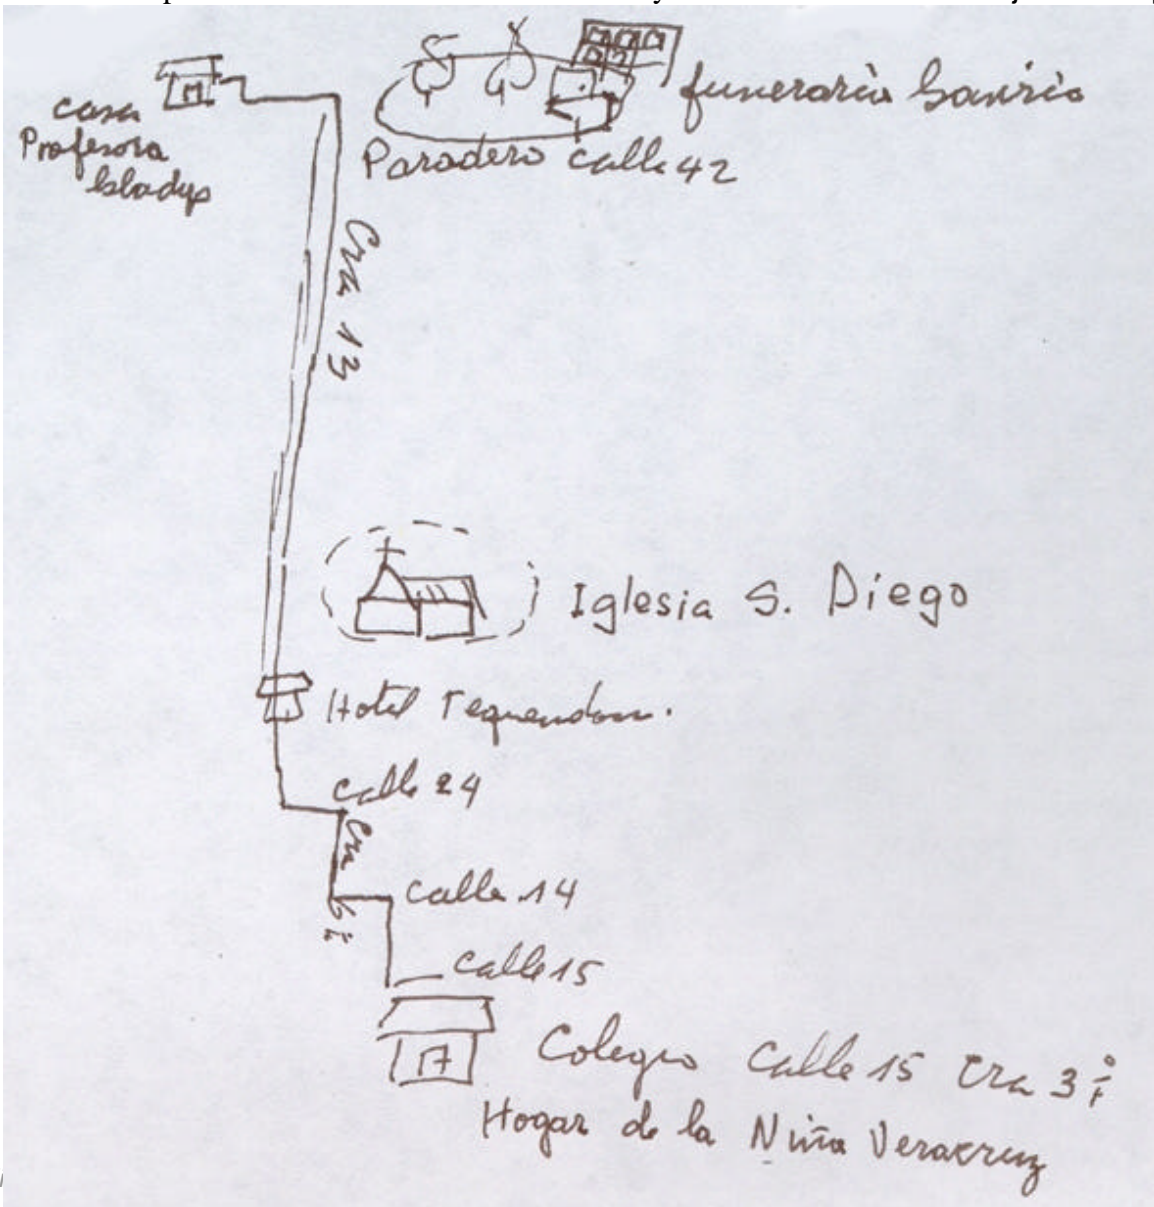 casa
Profesora
Gladys
funeraria Gaviria
Paradero calle 42
Cra 13
Iglesia S. Diego
Hotel Tequendam.
Calle 24
Cra
Calle 14
Calle 15
Colegio Calle 15 Cra 3ª
Hogar de la Niña Veracruz